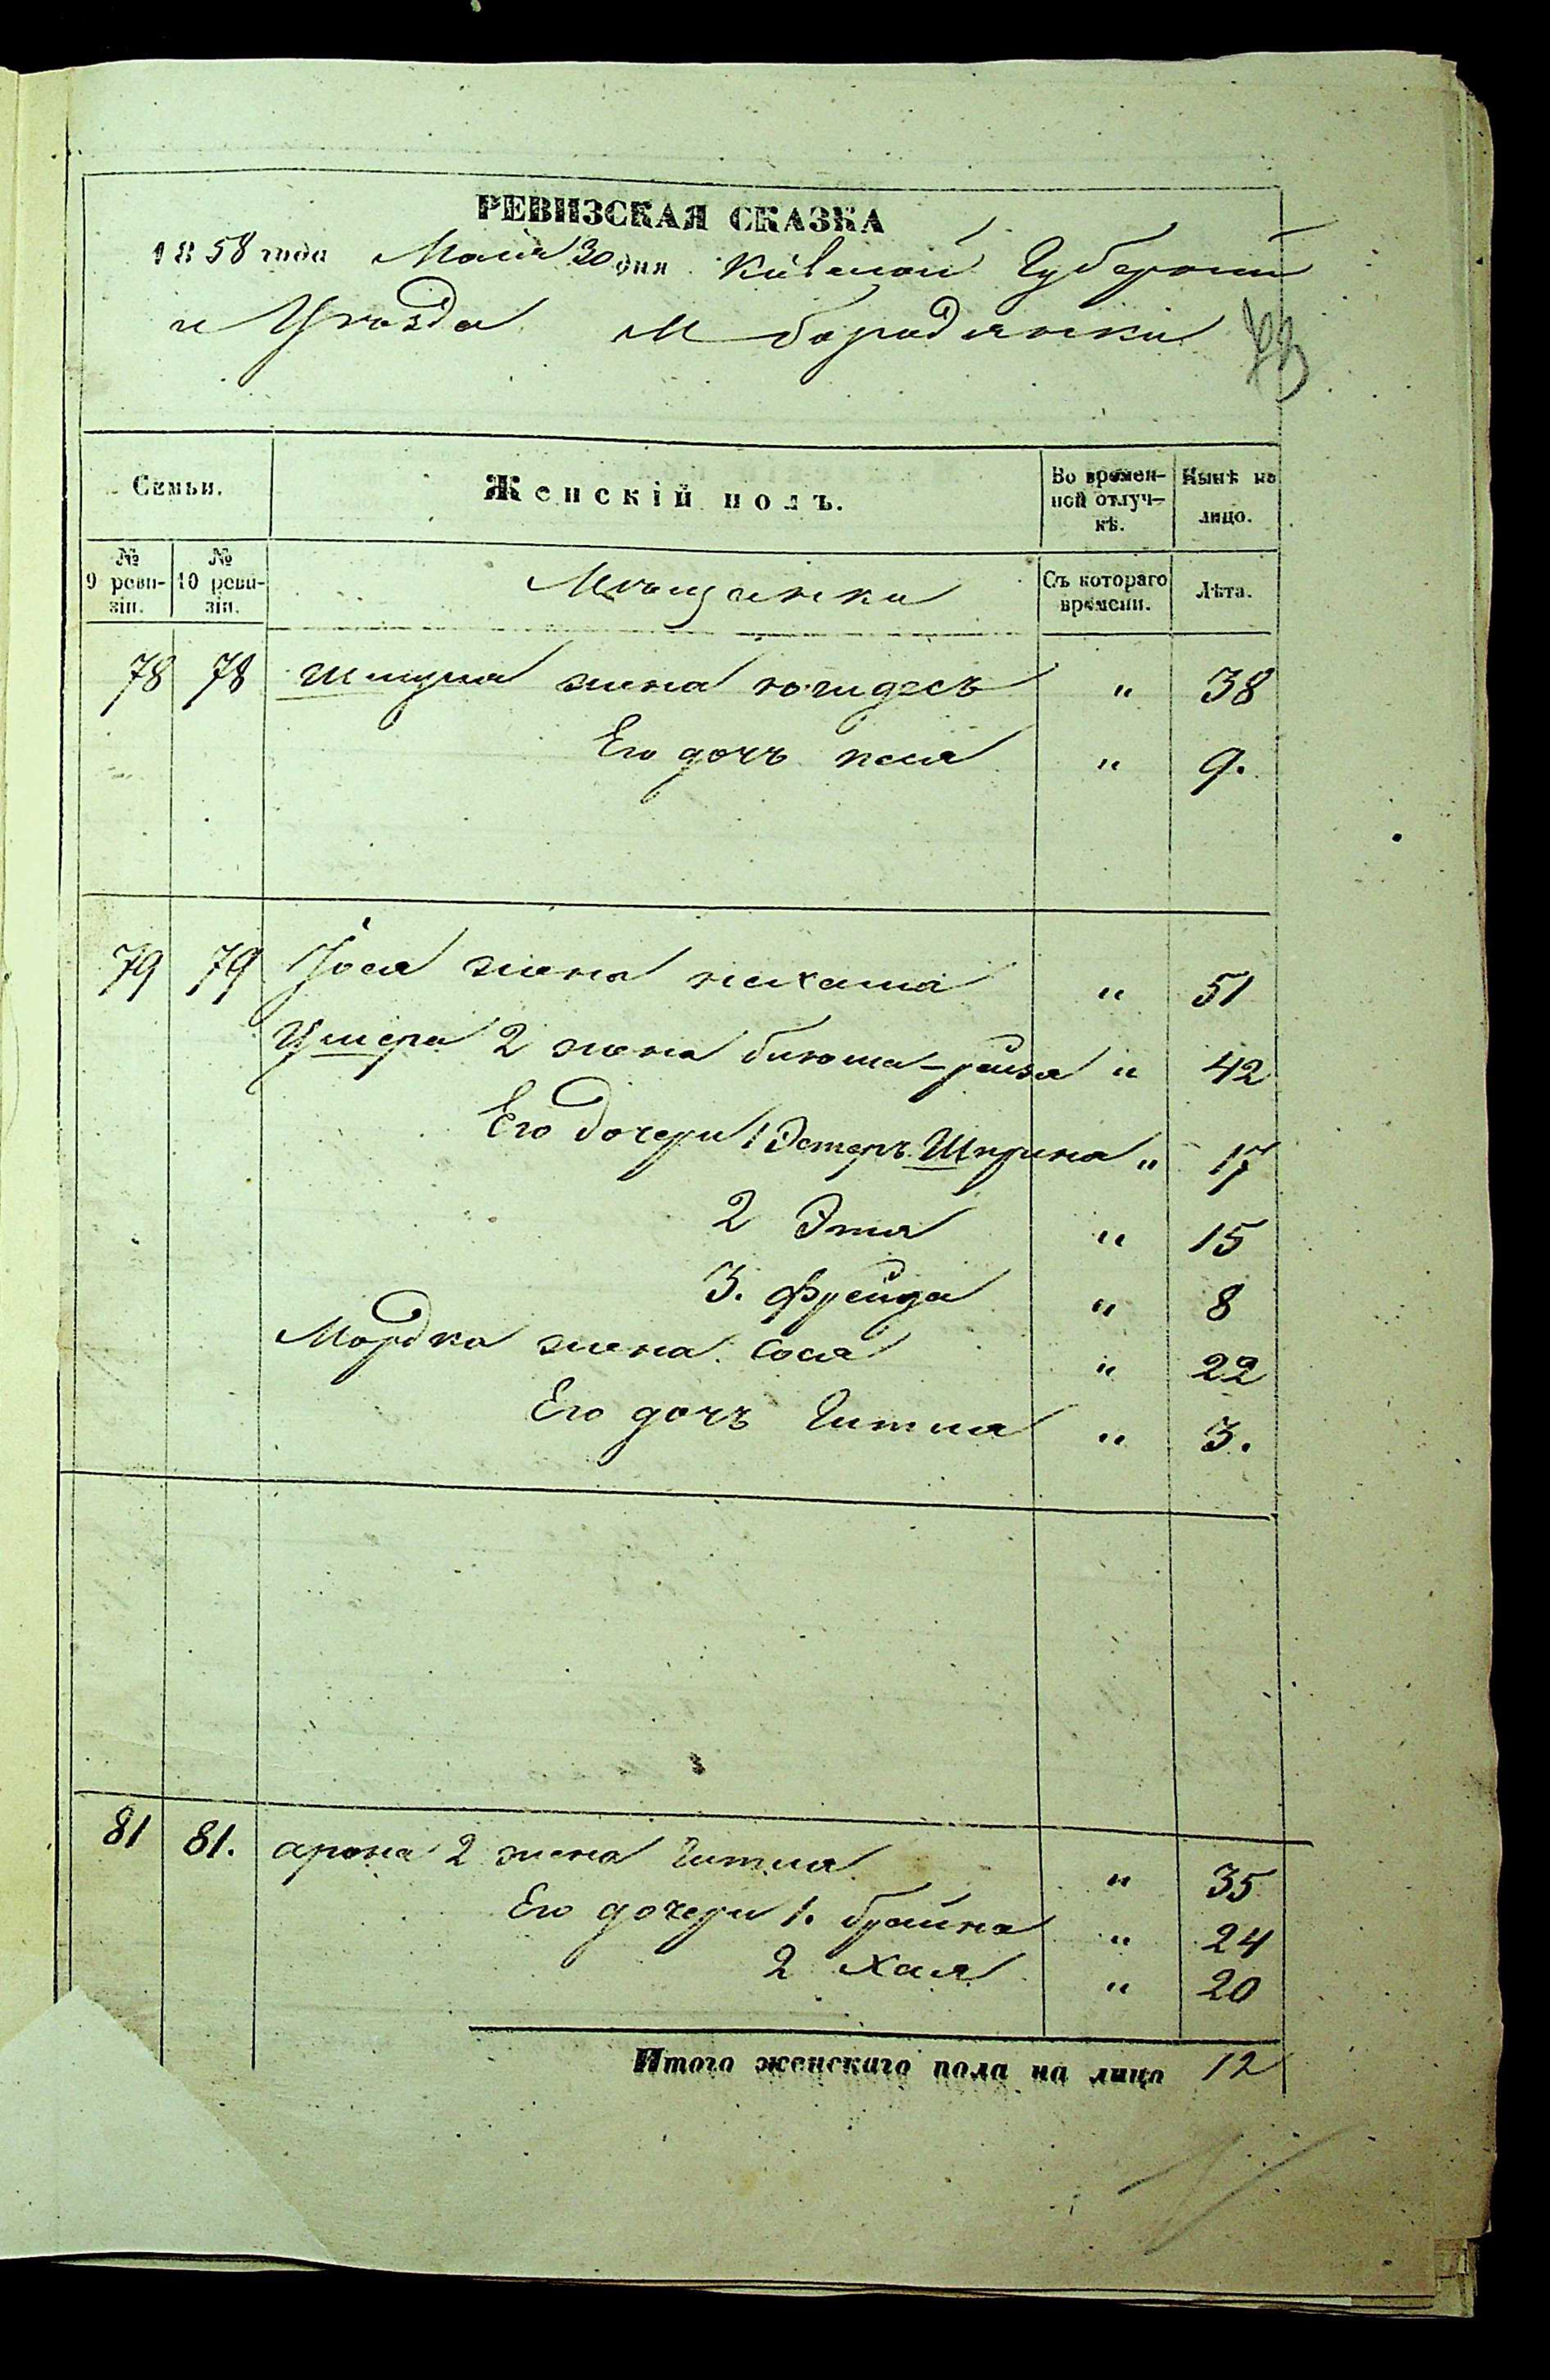 РЕВИЗСКАЯ СКАЗКА
1858 года Маія 30 дня Кіевской Губерніи
и Уѣзда М Бородянки
Семьи.
Женскій полъ.
Во времен-
ной отлуч-
кѣ.
Нынѣ на
лицо.
№
9 реви-
зіи.
№
10 реви-
зіи.
Мѣщанки
Съ котораго
времени.
Лѣта.
78 78 Шмуля жена " 38
Его дочь " 9.
79 79 Іося жена " 51
Умера 2 жена " 42
Его дочери 1 Эстеръ Шпрына " 17
2 Этя " 15
3. Фрейда " 8
Мордка жена Сося " 22
Его дочь Гитля " 3.
81 81. арона 2 жена Гитля " 35
Его дочери 1. брайна " 24
2 Хая " 20
Итого женскаго пола на лицо 12